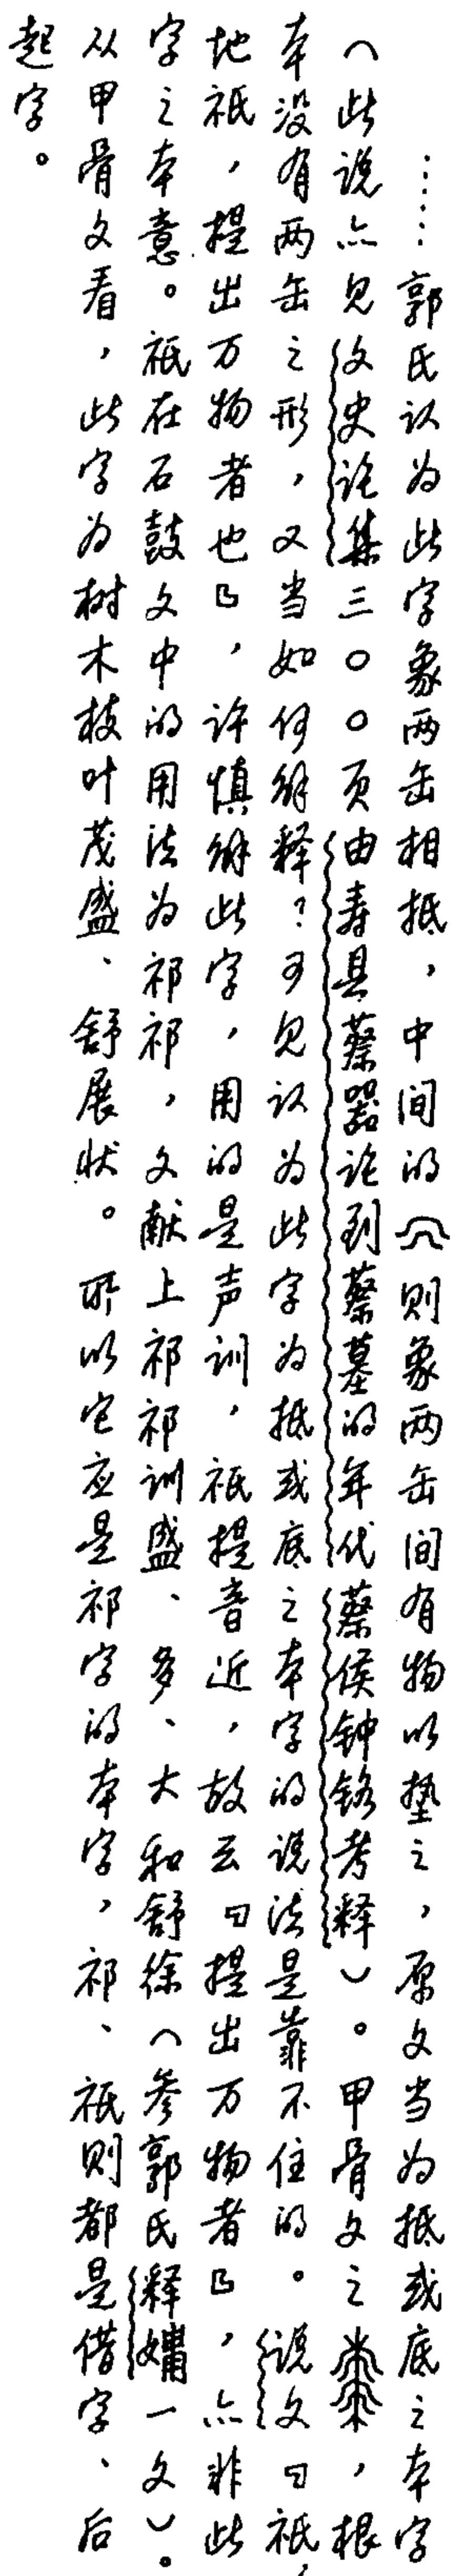 ……郭氏认为此字象两缶相抵，中间的则象两缶间有物以垫之，原文当为抵或底之本字
（此说亦见文史论集三〇〇页由寿县蔡器论到蔡墓的年代蔡侯钟铭考释）。甲骨文之，根
本没有两缶之形，又当如何解释？可见认为此字为抵或底之本字的说法是靠不住的。说文曰祇，
地祇，提出万物者也』，许慎解此字，用的是声训，祇提音近，故云『提出万物者』，亦非此
字之本意。祇在石鼓文中的用法为祁祁，文献上祁祁训盛、多、大和舒徐（参郭氏释䵼一文）。
从甲骨文看，此字为树木枝叶茂盛、舒展状。所以它应是祁字的本字，祁、祇则都是借字、后
起字。